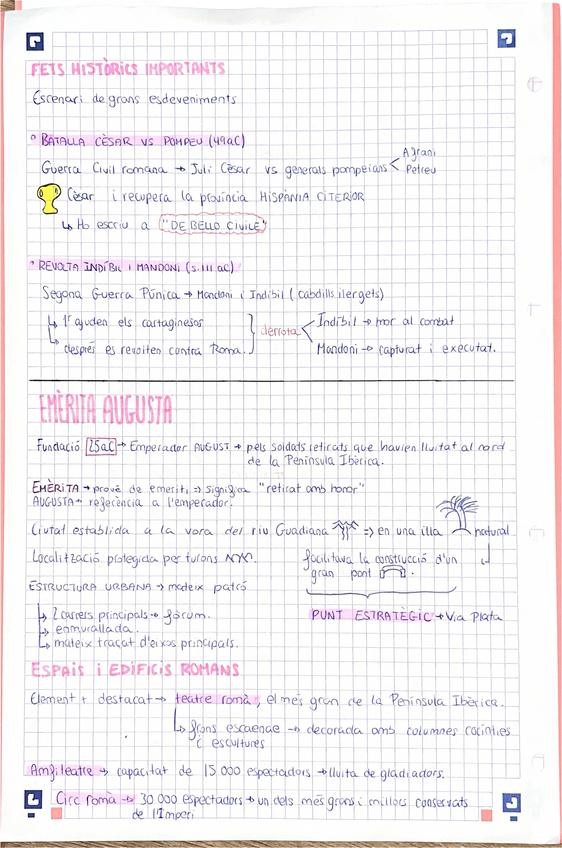 FETS HISTÒRICS IMPORTANTS
Escenari de grans esdeveniments
° BATALLA CÈSAR VS POMPEU (49aC)
Guerra Civil romana → Juli Cèsar vs generals pompeians < Afrani
Petreu
Cèsar i recupera la província HISPÀNIA CITERIOR
↳ Ho escriu a "DE BELLO CIVILE"
° REVOLTA INDÍBIL I MANDONI (s.III aC)
Segona Guerra Púnica → Mandoni i Indíbil (cabdills ilergets)
↳ 1r ajuden els cartaginesos
↳ després es revolten contra Roma.
} derrota <
Indíbil → mor al combat
Mandoni → capturat i executat.
EMÈRITA AUGUSTA
Fundació 25aC → Emperador AUGUST → pels soldats retirats que havien lluitat al nord
de la Península Ibèrica.
EMÈRITA → prové de emeriti → significa "retirat amb honor"
AUGUSTA → referència a l'emperador.
Ciutat establida a la vora del riu Guadiana => en una illa natural
Localització protegida per turons
facilitava la construcció d'un
gran pont
ESTRUCTURA URBANA → mateix patró
↳ 2 carrers principals → fòrum.
↳ enmurallada.
↳ mateix traçat d'eixos principals.
PUNT ESTRATÈGIC → Via Plata
ESPAIS i EDIFICIS ROMANS
Element + destacat → teatre romà, el més gran de la Península Ibèrica.
↳ frons escaenae → decorada amb columnes corínties
i escultures
Amfiteatre → capacitat de 15 000 espectadors → lluita de gladiadors.
Circ romà → 30 000 espectadors → un dels més grans i millors conservats
de l'Imperi